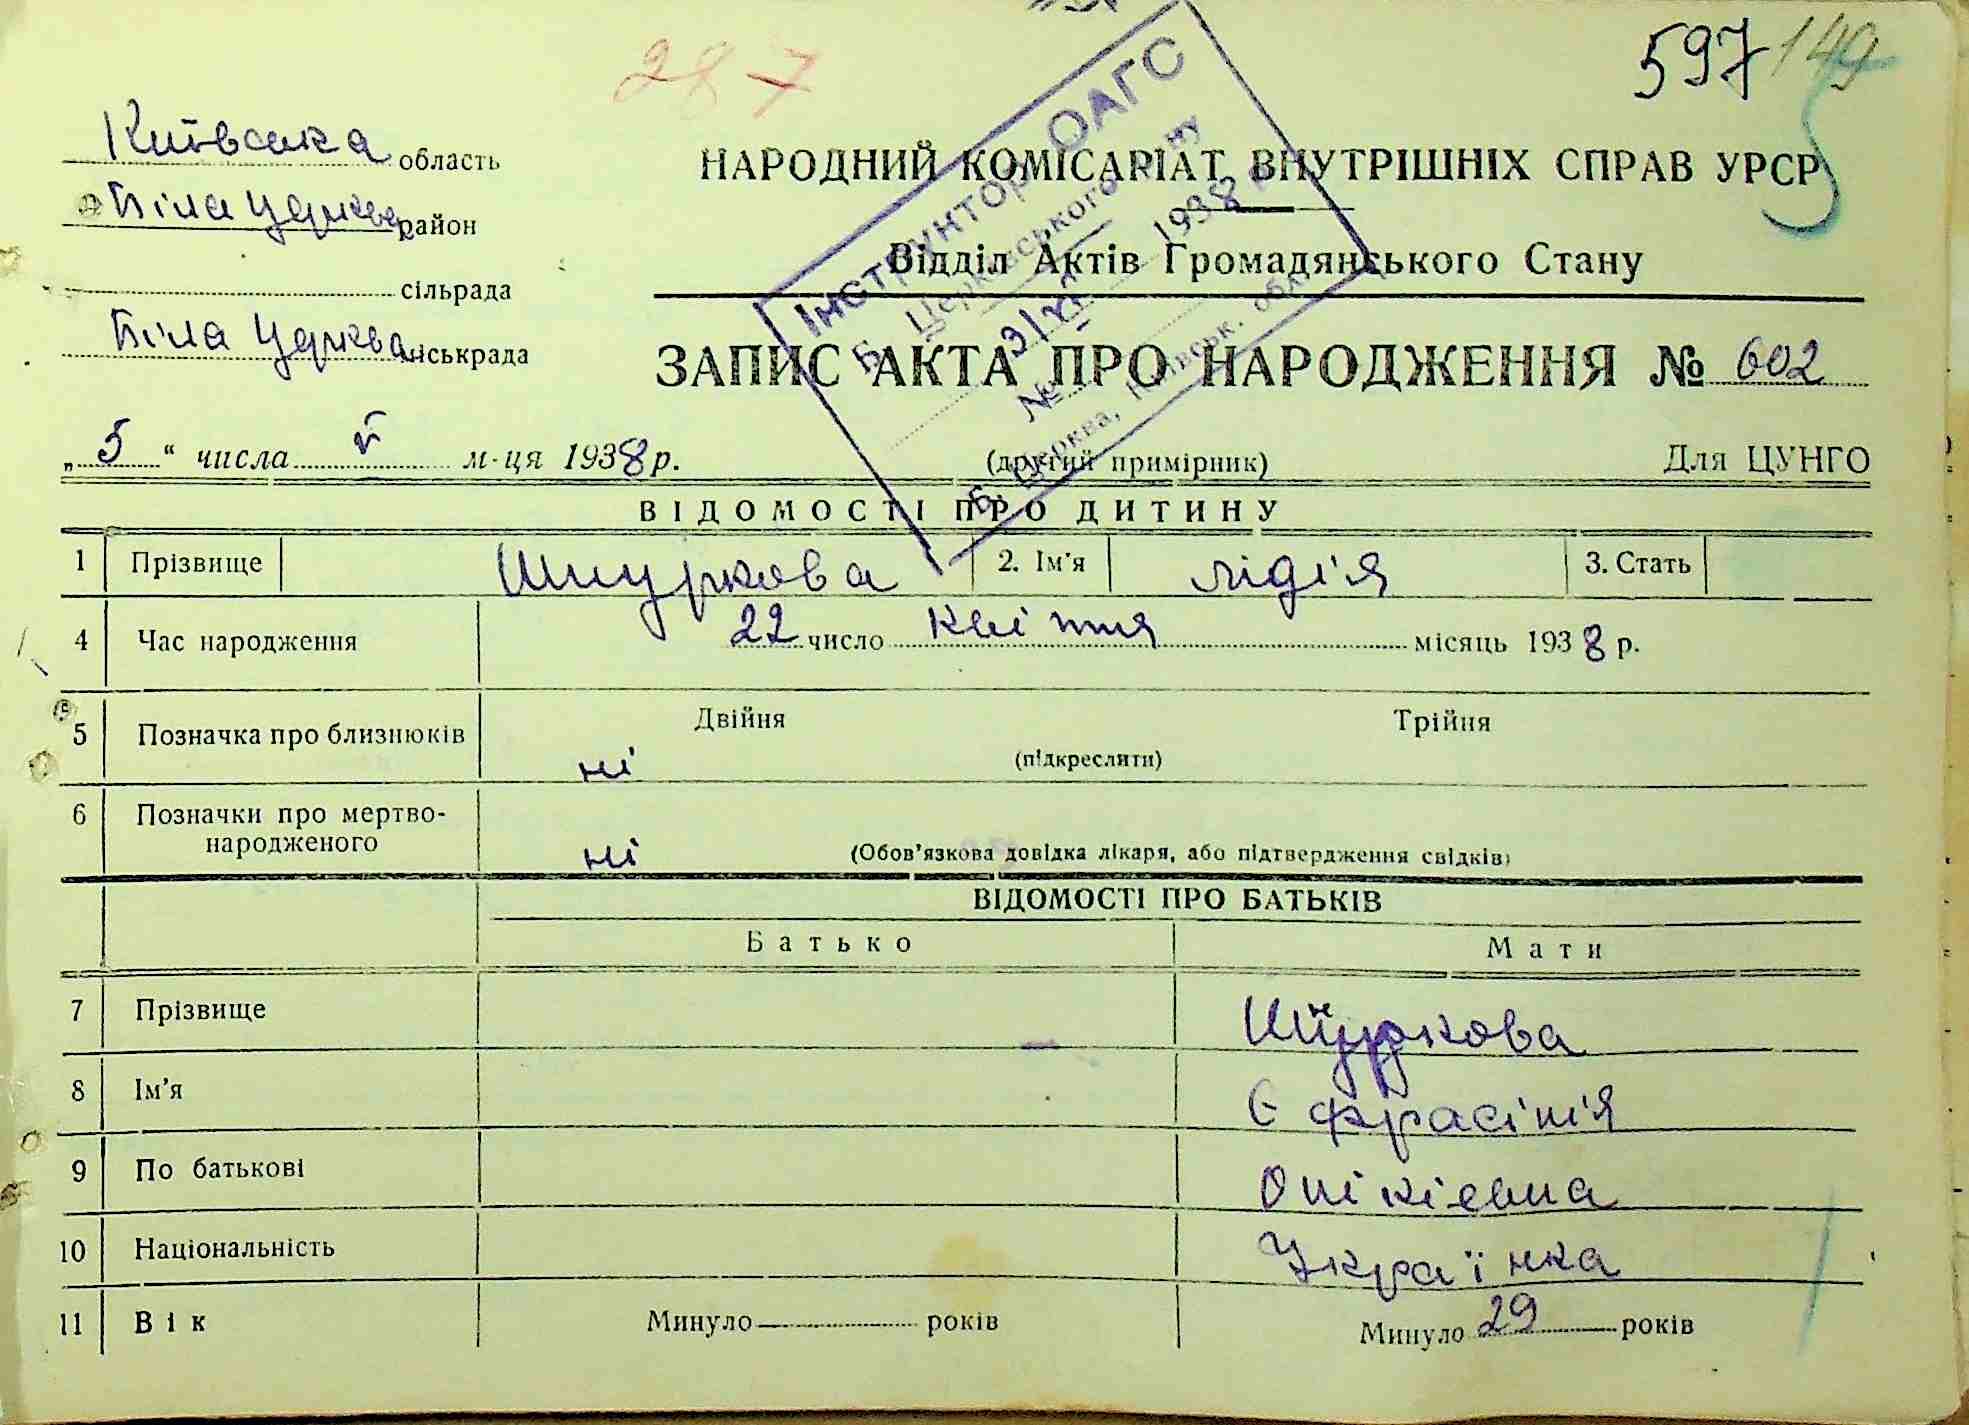 597 149
28 7
Київська область
Біла Церква район
сільрада
Біла Церква міськрада
НАРОДНИЙ КОМІСАРІАТ ВНУТРІШНІХ СПРАВ УРСР
Відділ Актів Громадянського Стану
ЗАПИС АКТА ПРО НАРОДЖЕННЯ № 602
Інструктор ОАГС
Б Церківського
№ 1938
Б. Церква, Київськ. обл.
„5“ числа V м-ця 1938 р. (другий примірник) Для ЦУНГО
ВІДОМОСТІ ПРО ДИТИНУ
1 Прізвище Шнуркова 2. Ім'я Лідія 3. Стать
4 Час народження 22 число квітня місяць 1938 р.
5 Позначка про близнюків Двійня Трійня
ні (підкреслити)
6 Позначки про мертво-
народженого ні (Обов'язкова довідка лікаря, або підтвердження свідків)
ВІДОМОСТІ ПРО БАТЬКІВ
Батько Мати
7 Прізвище Шнуркова
8 Ім'я Єфрасінія
9 По батькові Онікіевна
10 Національність Українка
11 Вік Минуло років Минуло 29 років